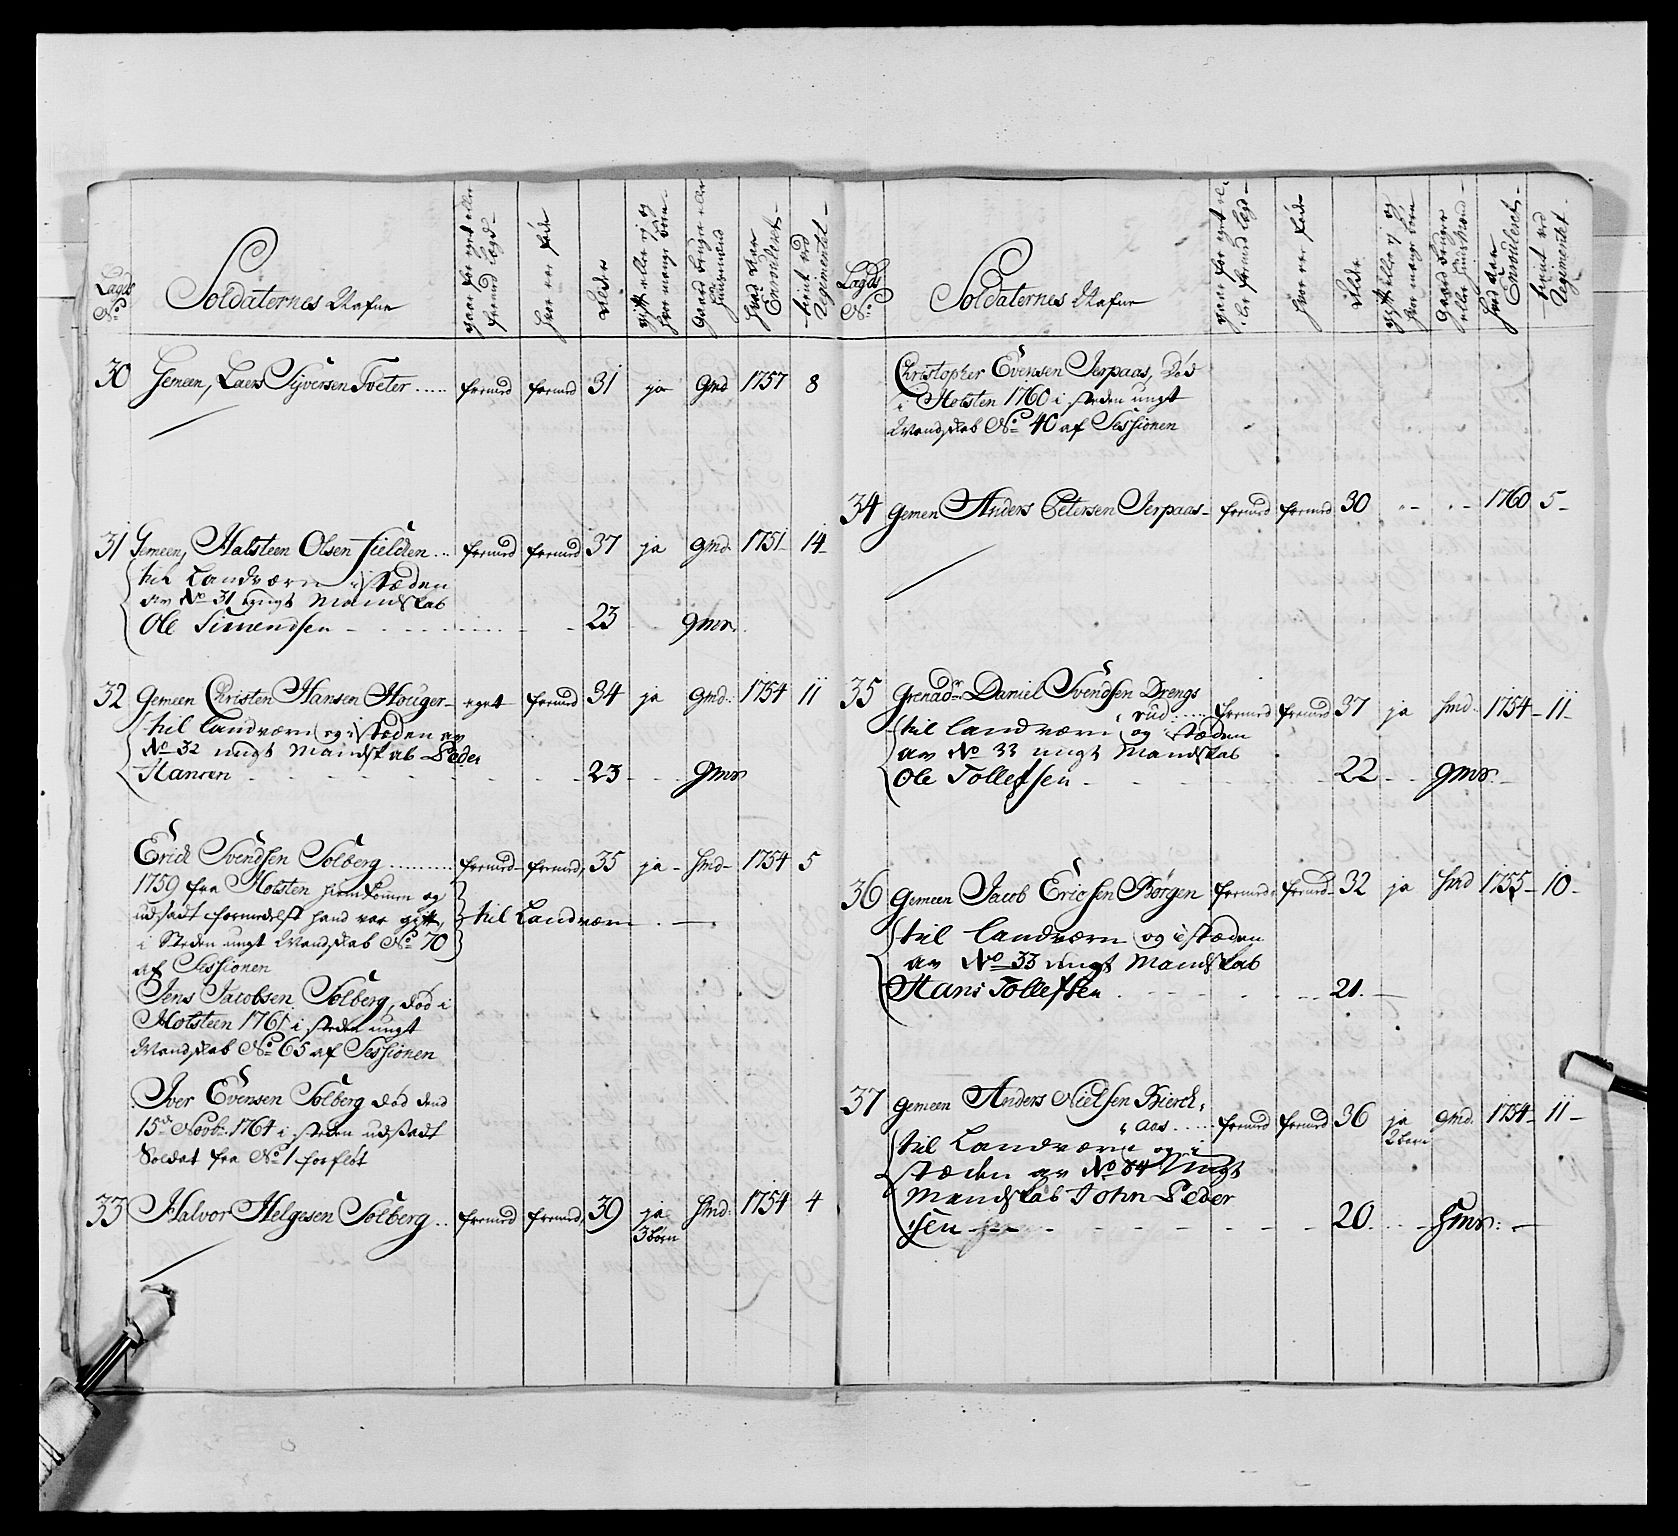 Lagds No
Soldaternes Nafne
gaar for eget eller fremed Lægd
hvor er føde
Alder
gift eller ej og hvor mange Børn
Gaard bruger eller Huusmand
hvad Aar Enroulleret
tient ved Regimentet
30 Gemeen, Laers Sÿversen Tveter fremed fremed 31 ja Gmd 1757 8
31 Gemeen, Halsteen Olsen Fielden fremed fremed 37 ja gmd. 1751 14
til Landværn i stæden
av No 31 ungt Mandskab
Ole Simensen 23 gmr.
32 Gemeen Christen Hansen Houger eget fremed 34 ja gmd. 1754 11
til Landværn og i stæden av
No 32 ungt Mandskab Peder
Hansen 23 gmr
Erich Svendsen Solberg fremed fremed 35 ja hmd 1754 5
1759 fra Holsten hiemkomen og
udsadt formedelst hand var gift, til Landværn
i Steden ungt Mandskab No 70
af Sessionen
Jens Jacobsen Solberg, død i
Holsteen 1761 i steden ungt
Mandskab No 65 af Sessionen
Iver Evensen Solberg død dend
15de Novbr 1764 i steden udsadt
Soldat fra No 1 forfløt
33 Halvor Helgesen Solberg fremed fremed 39 ja hmd. 1754 4
3 børn
Lagds No
Soldaternes Nafne
gaar for eget eller fremed Lægd
hvor er føde
Alde
gift eller ej og hvor mange børn
Gaard bruger eller Huusmand
hvad Aar Enroulleret
tient ved Regimentet
Christopher Evensen Jerpaas, Død
i Holsten 1760 i steden ungt
Mandskab No 40 af Sessionen
34 Gemen Anders Petersen Jerpaas fremed fremed 30 1760 5
35 Grenadr Daniel Svendsen Drengs
rud fremed fremed 37 ja hmd. 1754 11
til landværn og i stæden
av No 33 ungt Mandskab
Ole Tollefsen 22 gmr.
36 Gemeen Jacob Ericsen Børgen fremed fremed 32 ja hmd 1755 10
til landværn og i stæden
av No 33 ungt Mandskab
Hans Tollefsen 21.
37 Gemeen Anders Nielsen Bierch,
aas fremed fremed 36 ja gmd. 1754 11
2 børn
til Landværn og i
stæden av No 34 ungt
Mandskab John Peder
sen 20. hmr.